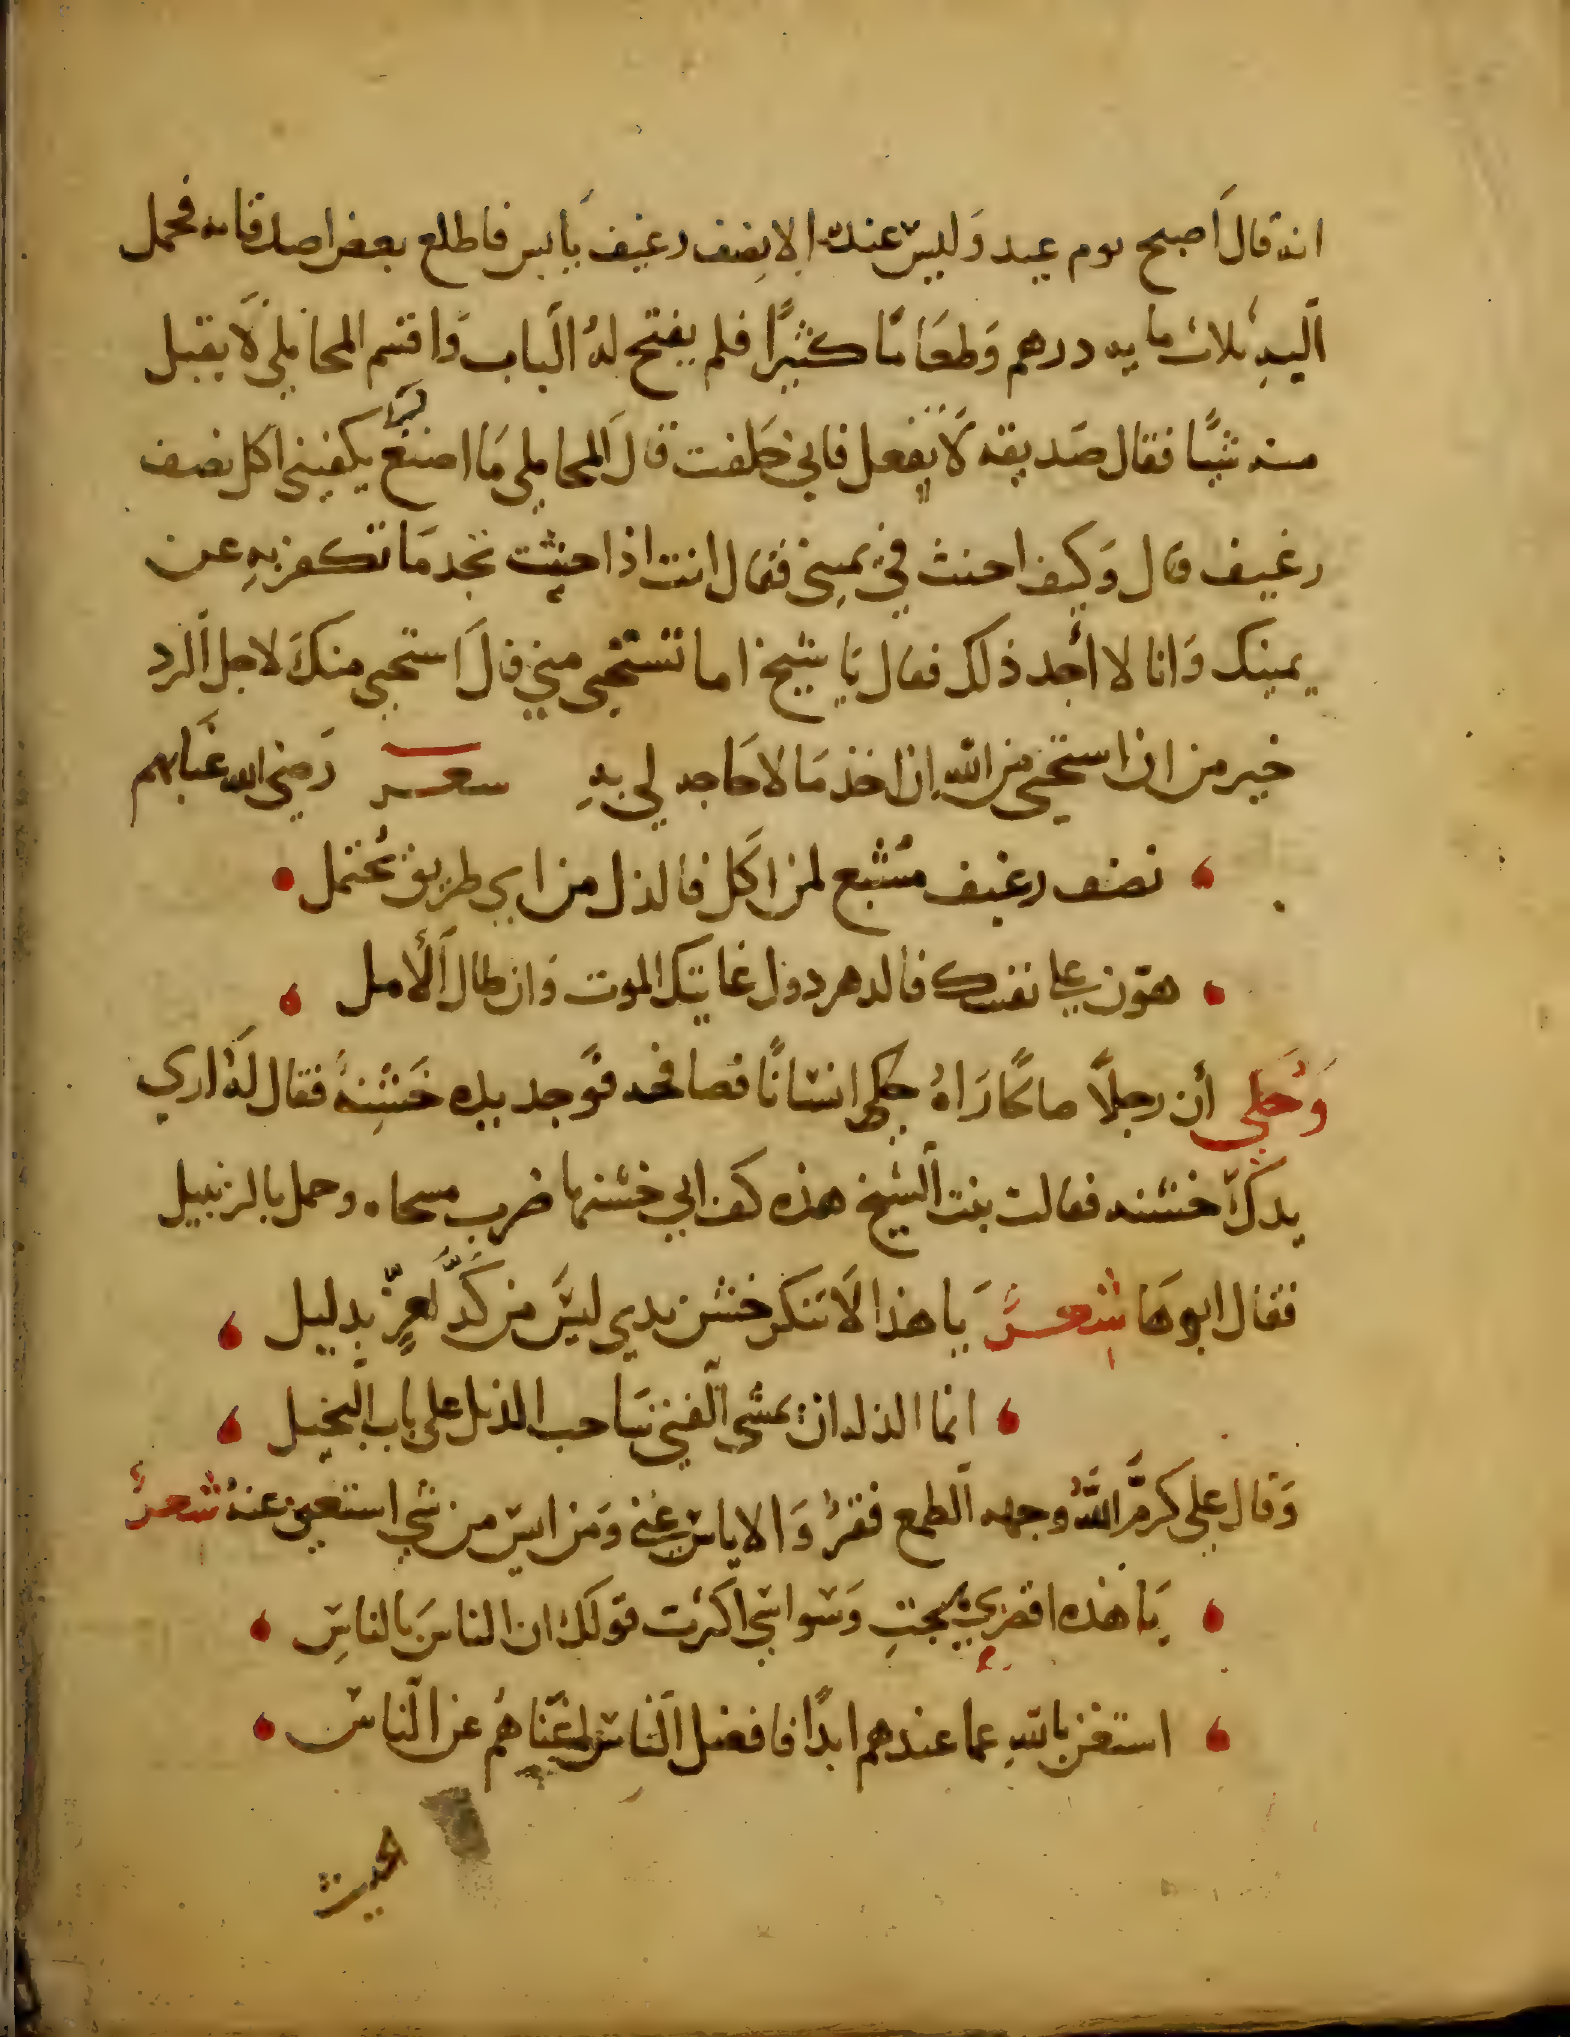 انه قال اَصبح يوم عيد وَليس عنده الا نصف رغيف يَابس فاطلع بعض اصدقايه فحمل
اليهِ ثلاث مايه درهم وَطعَامًا كثيرًا فلم يفتح لهُ الباب وَاقسم المحاملي لَا يقبل
منه شيًا فقال صَديقه لَا تفعل فاني حَلفت قالَ المحاملي مَا اصنع يكفيني اكل نصف
رغيف قال وَكيف احنث في يمينى فقال انت اذا حنثت تجد مَا تكفر بهِ عن
يمينك وَانا لا أجد ذلك فقال يَا شيخ اما تستحى مني قالَ استحيى منكَ لاجل الرد
خير من ان استحى من الله ان اخذ مَا لا حَاجه لي بهِ شعر رَضي الله عنهم
نصف رغيف مُشبع لمن اكل فالذل من اي طريق مُحتمل
هوّن على نفسك فالدهر دول غايتك الموت وَان طالَ الأمل
وَحُكي أن رجلًا صالحًا رَاهُ انسَانًا فصافحه فوَجد يده خَشِنهً فقال لَهُ ارى
يدكَ خشنه فقالت بنت الشيخ هذه كف ابي خشنها ضرب مسحاه وحمل بالزنبيل
فقال ابوهَا شِعرٌ يَا هذا لَا تنكر خشن يدي ليسَ من كَدَّ لعزٍّ بدليل
انما الذله ان يمشى الفتى سَاحب الذيل على باب البخيل
وَقال علي كرمَّ اللَّهُ وجهه الطمع فقرٌ وَالاياس غنى وَمن ايس من شي استغنى عنهُ شعرٌ
يَا هذه اقصري وَسواسي اكثرت قولك ان الناسَ بالناسِ
استغن باللهِ عما عندهم ابدًا فافضل النّاس اغنَاهُم عن النّاس
الحديث